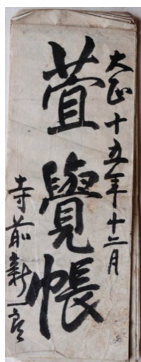 大正十五年十二月
萱覺帳
寺前新一